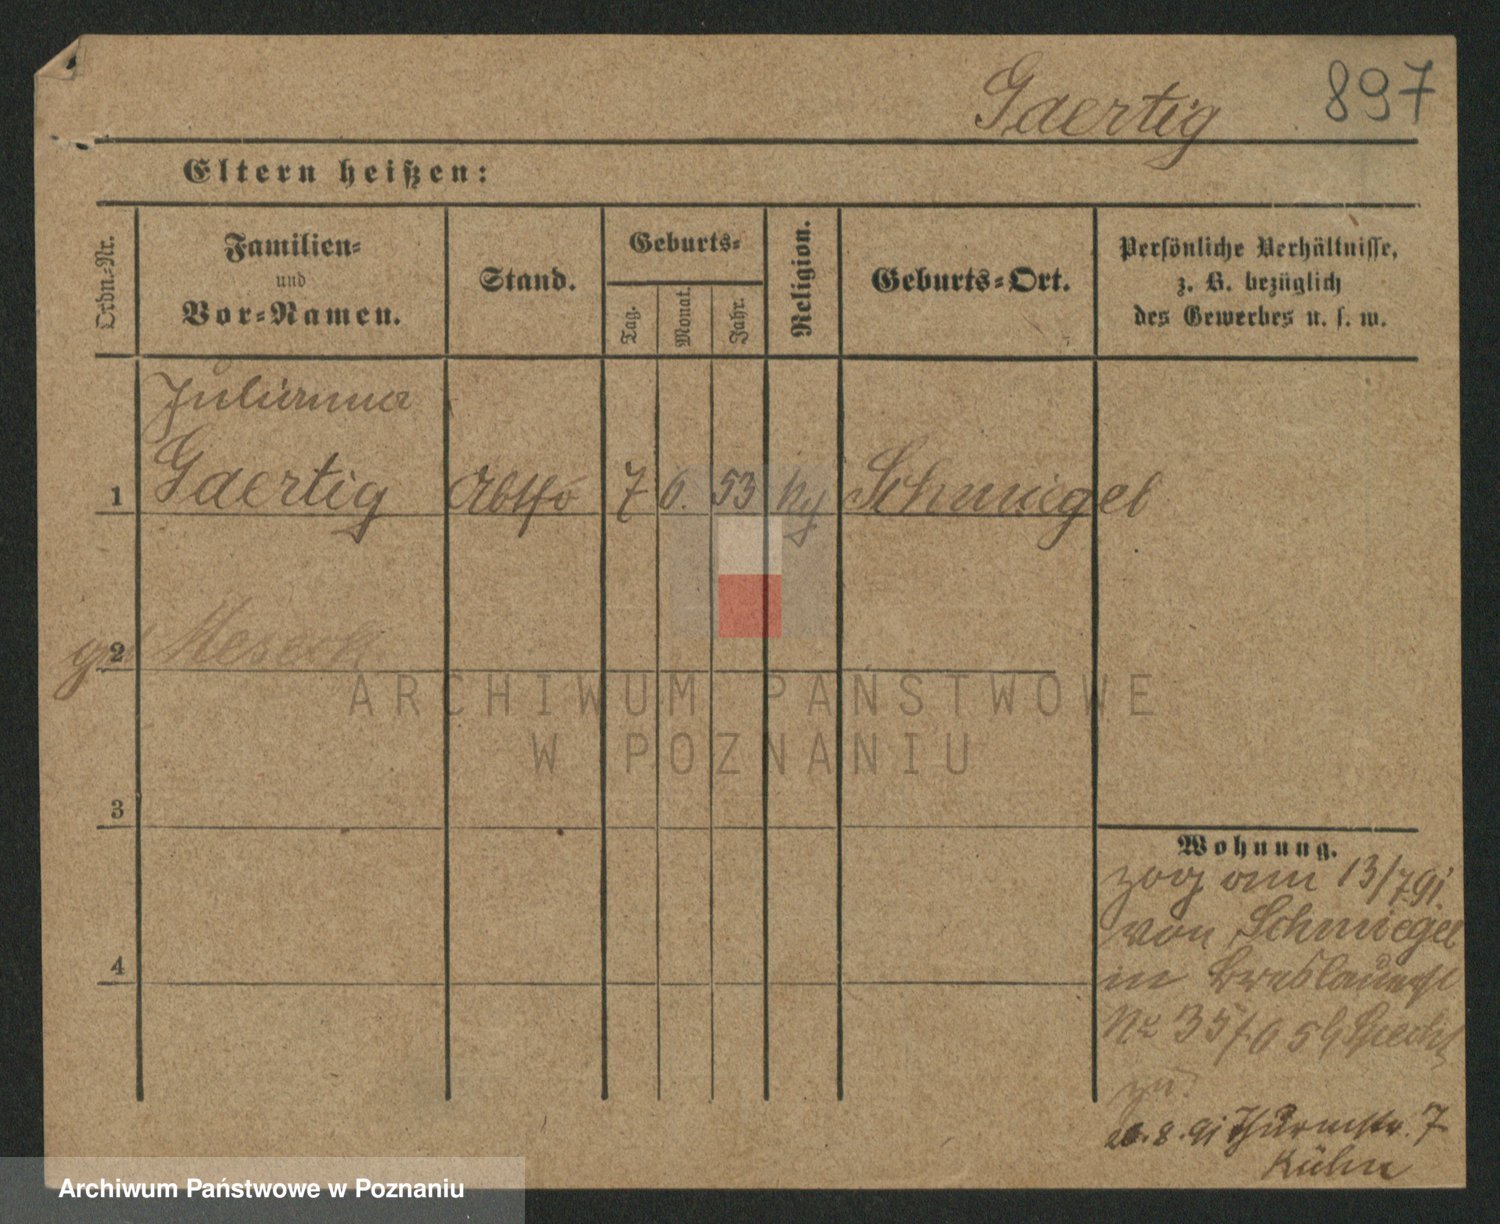 Gaertig 897
Eltern heißen:
Ordn.-Nr.
Familien-
und
Vor-Namen.
Stand.
Geburts-
Tag.
Monat.
Jahr.
Religion.
Geburts-Ort.
Persönliche Verhältnisse,
z. B. bezüglich
des Gewerbes u. s. w.
Julianna
1 Gaertig 7 6. 53 Schmiegel
2
3
4
Wohnung.
zog am 13/7 91
von Schmiegel
in
No 35
zu
8. 91 Thurmstr. 7
Kühn
ARCHIWUM PAŃSTWOWE
W POZNANIU
Archiwum Państwowe w Poznaniu